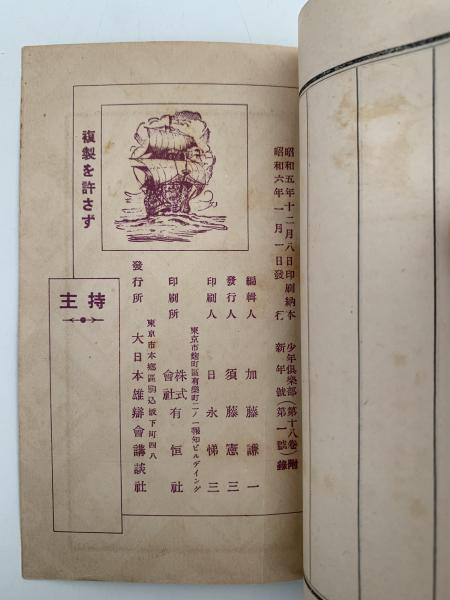 複製を許さず
昭和五年十二月八日印刷納本
昭和六年一月一日發行
少年倶樂部（第十八卷）附錄
新年號（第一號）
編輯人 加藤謙一
發行人 須藤憲三
印刷人 日永悌三
東京市麹町區有樂町二ノ一報知ビルデイング
印刷所 株式會社有恒社
東京市本鄕區駒込坂下町四八
發行所 大日本雄辯會講談社
持主